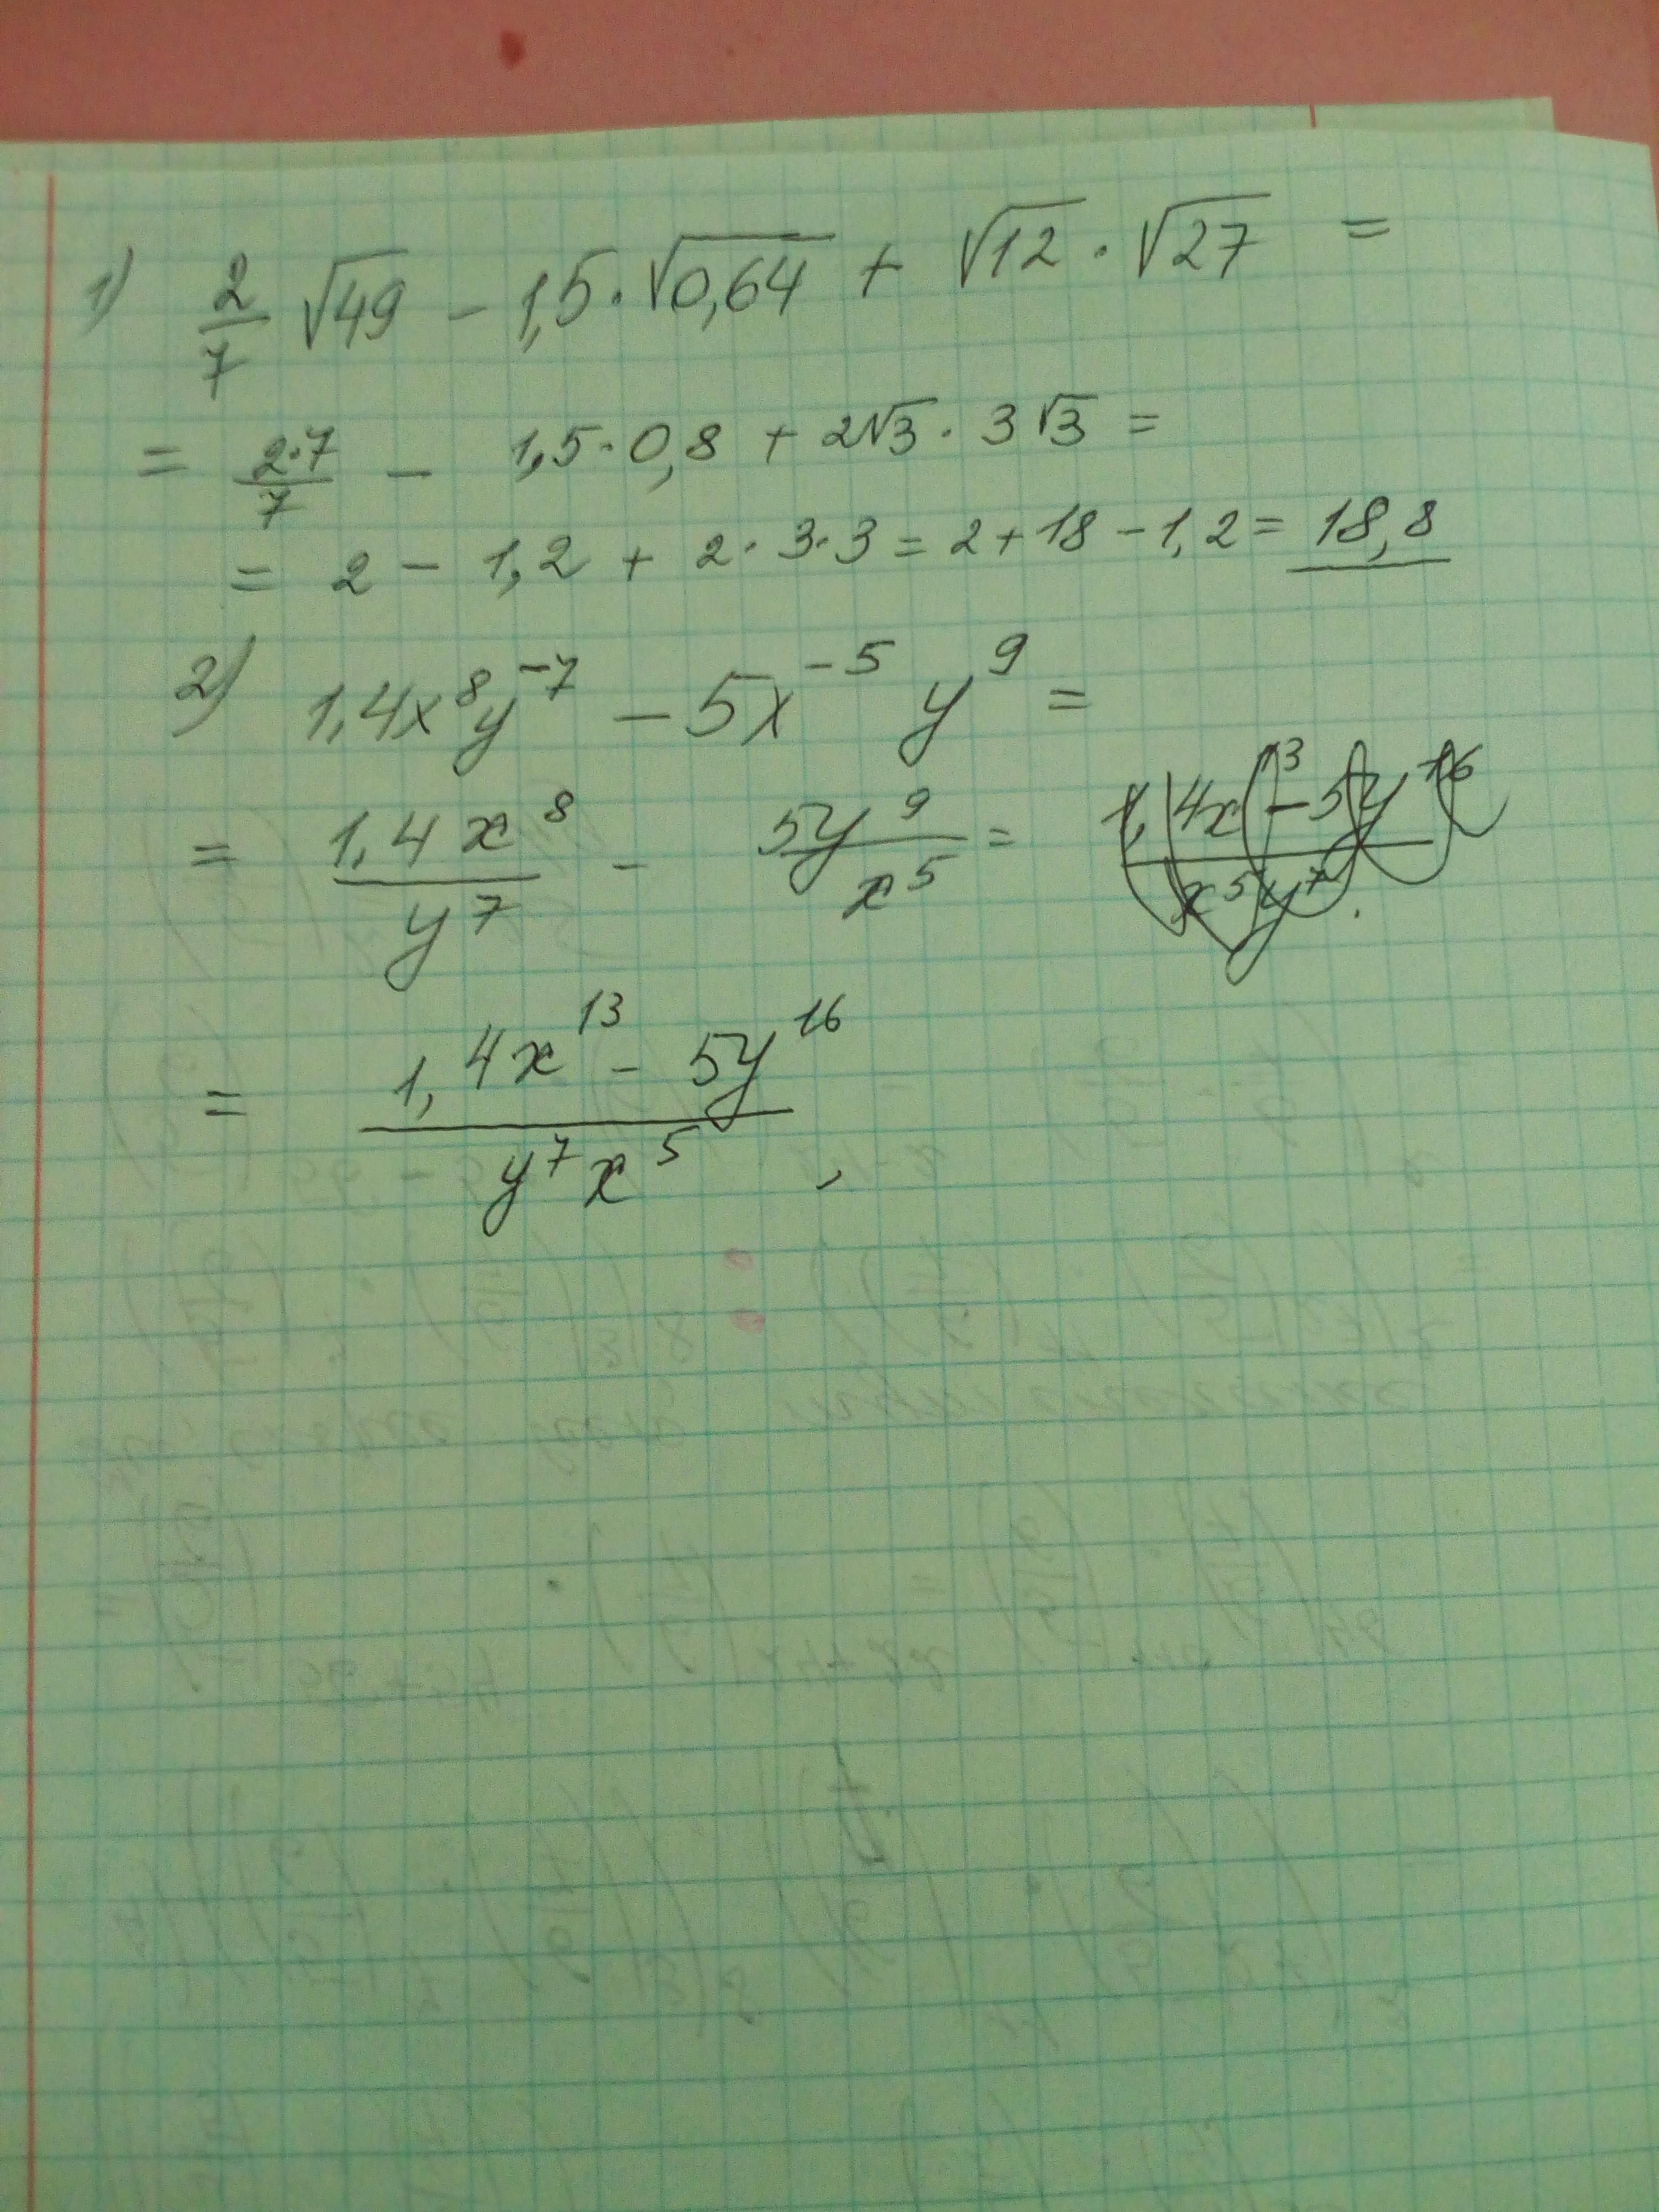 1) 2/7 √49 - 1,5·√0,64 + √12 · √27 =
= 2·7/7 - 1,5·0,8 + 2√3 · 3√3 =
= 2 - 1,2 + 2·3·3 = 2+18-1,2 = 18,8
2) 1,4x⁸y⁻⁷ - 5x⁻⁵ y⁹ =
= 1,4x⁸/y⁷ - 5y⁹/x⁵ =
= 1,4x¹³ - 5y¹⁶ / y⁷x⁵